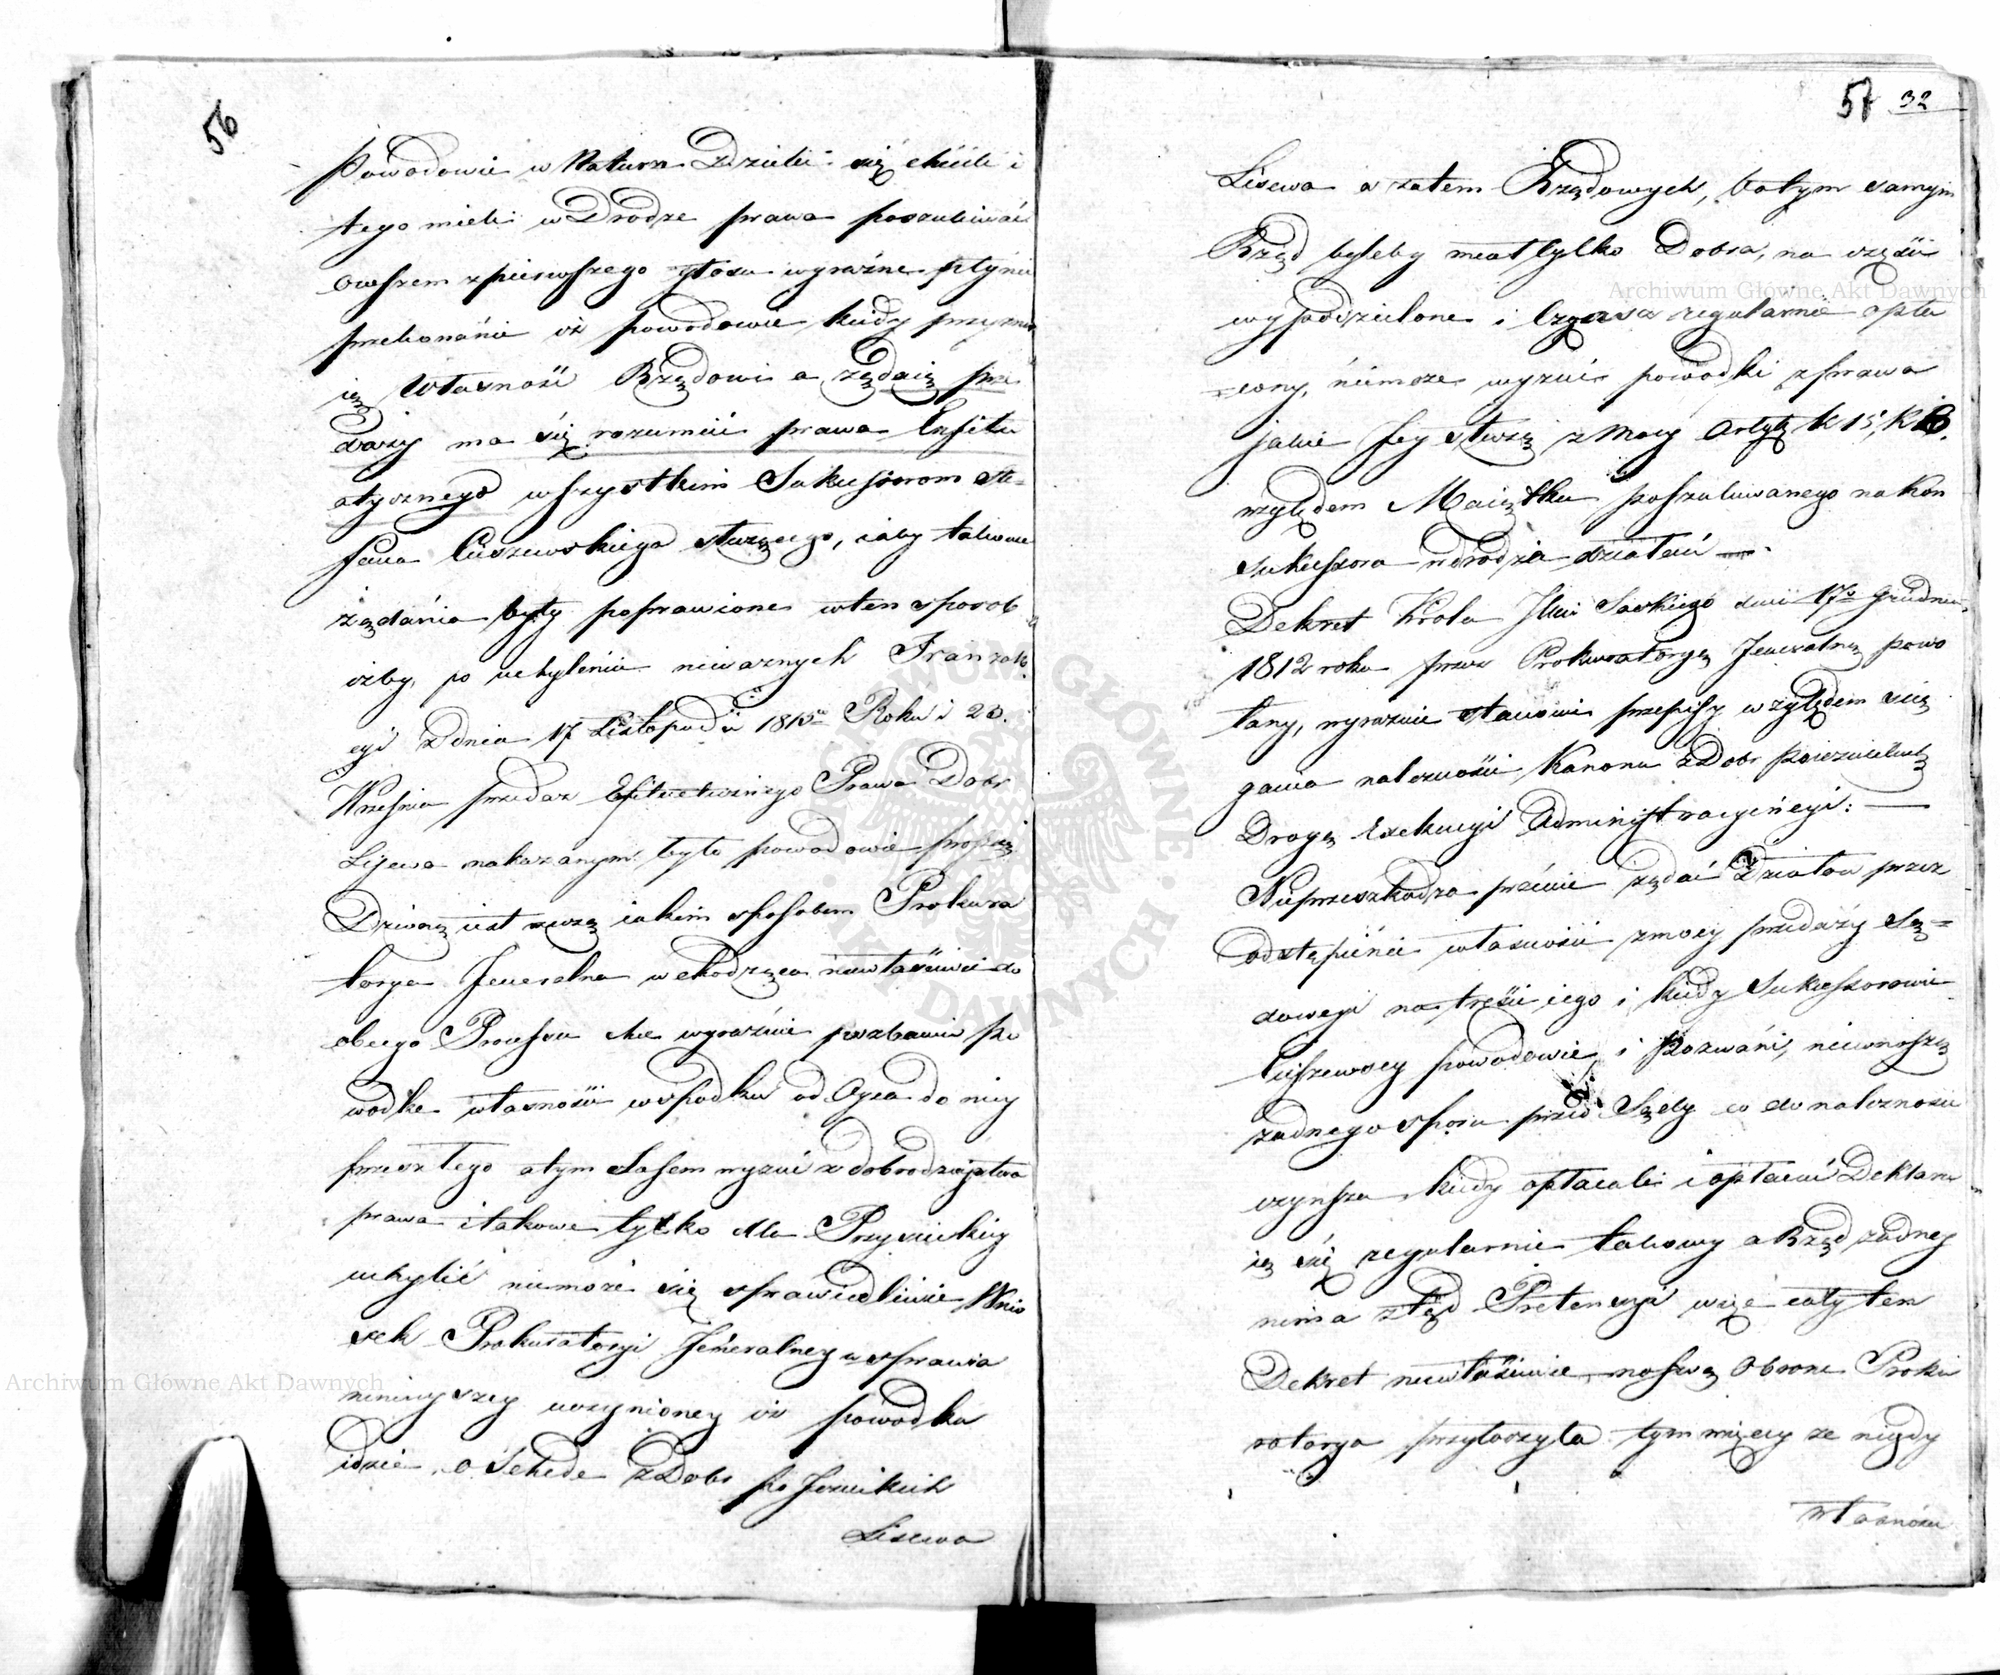 56
Powodowie w Natura Dzielić się chcieli i
tego mieli w Drodze prawa poszukiwać
owszem z pierwszego głosu wyraźne płynie
przekonanie iż powodowie kiedy przyzna
ią Własność Rządowi a żądaią prze
daży ma się rozumieć prawa Enfitu
atycznego wszystkim Sukcessorom Ste=
fana Ciszewskiego służącego, iaby takowe
żądania były poprawione w ten sposob
iżby, po uchyleniu nieważnych Tranzak
cyi z Dnia 17 Listopada 181 Roku i 20.
Września przedaż Prawa Dobr
Lisewa nakazanym było powodowie proszą
Dziwną iest rzeczą iakim sposobem Prokura
torya Jeneralna wchodząca niewłaściwie do
obcego Processu chce wyraźnie pozbawić po
wodkę własności w spadku od Oyca do niey
przeszłego a tym samem wyzuć z dobrodzieystwa
prawa i takowe tylko dla Przysieckiey
uchylić niemoże się sprawiedliwie Wnio
sek Prokuratoryi Jeneralney w sprawie
ninieyszey uczynioney iż powodka
idzie o Schedę z Dobr po Jezuickich
Lisewa
57 32
Lisewa a zatem Rządowych, bo tym samym
Rząd byleby miał tylko Dobra, na części
wypodzielone i Czynsz regularnie opła
cony, niemoże wyzuć powodki z prawa
jakie Jey służą z Mocy Artykk 15, K
względem Maiątku poszukiwanego na Kon
sukcessora w drodze działań
Dekret Krola Jmci Saskiego dnia 17o Grudnia
1812 roku przez Prokuratoryą Jeneralną powo
łany, wyraźnie stanowi przepisy względem ścią
gania należności Kanonu z Dobr Pojezuickich
Drogą Exekucyi Administracyiney:
Nieprzeszkadza prawie żądać Działów przez
odstąpienie własności z mocy przedaży Są=
dowey na treści iego i kiedy Sukcessorowie
Ciszewscy powodowie i Pozwani, niewnoszą
żadnego sporu przed Sądy co do należności
czynszu kiedy opłacali i opłacać Deklaru
ią się regularnie takowy a Rząd żadney
niema ztąd Pretensyi więc cały ten
Dekret niewłaściwie na swą Obronę Proku
ratorya przytoczyła tym więcey że nigdy
własności
Archiwum Główne Akt Dawnych
Archiwum Główne Akt Dawnych
ARCHIWUM GŁÓWNE AKT DAWNYCH